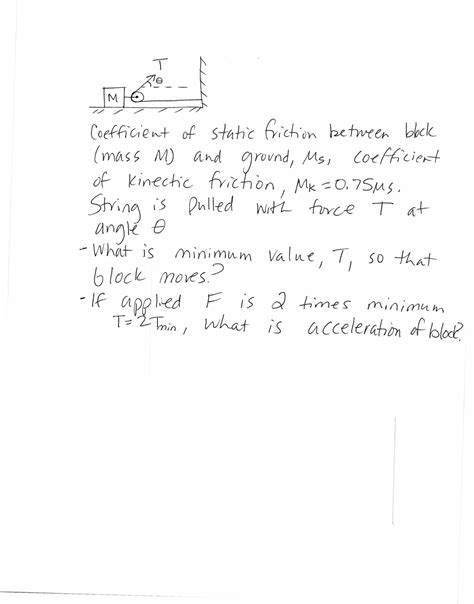 T
θ
M
Coefficient of static friction between block
(mass M) and ground, μs, coefficient
of kinectic friction, μk = 0.75μs.
String is pulled with force T at
angle θ
- What is minimum value, T, so that
block moves?
- If applied F is 2 times minimum
T = 2Tmin, what is acceleration of block?